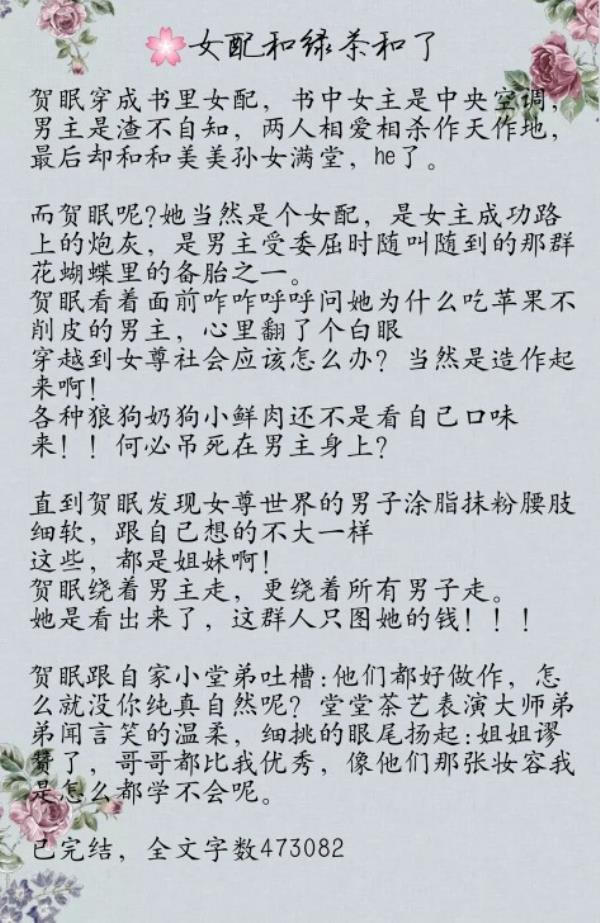 🌸女配和绿茶和了
贺眠穿成书里女配，书中女主是中央空调，
男主是渣不自知，两人相爱相杀作天作地，
最后却和和美美孙女满堂，he了。
而贺眠呢?她当然是个女配，是女主成功路
上的炮灰，是男主受委屈时随叫随到的那群
花蝴蝶里的备胎之一。
贺眠看着面前咋咋呼呼问她为什么吃苹果不
削皮的男主，心里翻了个白眼
穿越到女尊社会应该怎么办？当然是造作起
来啊！
各种狼狗奶狗小鲜肉还不是看自己口味
来！！何必吊死在男主身上？
直到贺眠发现女尊世界的男子涂脂抹粉腰肢
细软，跟自己想的不大一样
这些，都是姐妹啊！
贺眠绕着男主走，更绕着所有男子走。
她是看出来了，这群人只图她的钱！！！
贺眠跟自家小堂弟吐槽:他们都好做作，怎
么就没你纯真自然呢？堂堂茶艺表演大师弟
弟闻言笑的温柔，细挑的眼尾扬起:姐姐谬
赞了，哥哥都比我优秀，像他们那张妆容我
是怎么都学不会呢。
已完结，全文字数473082